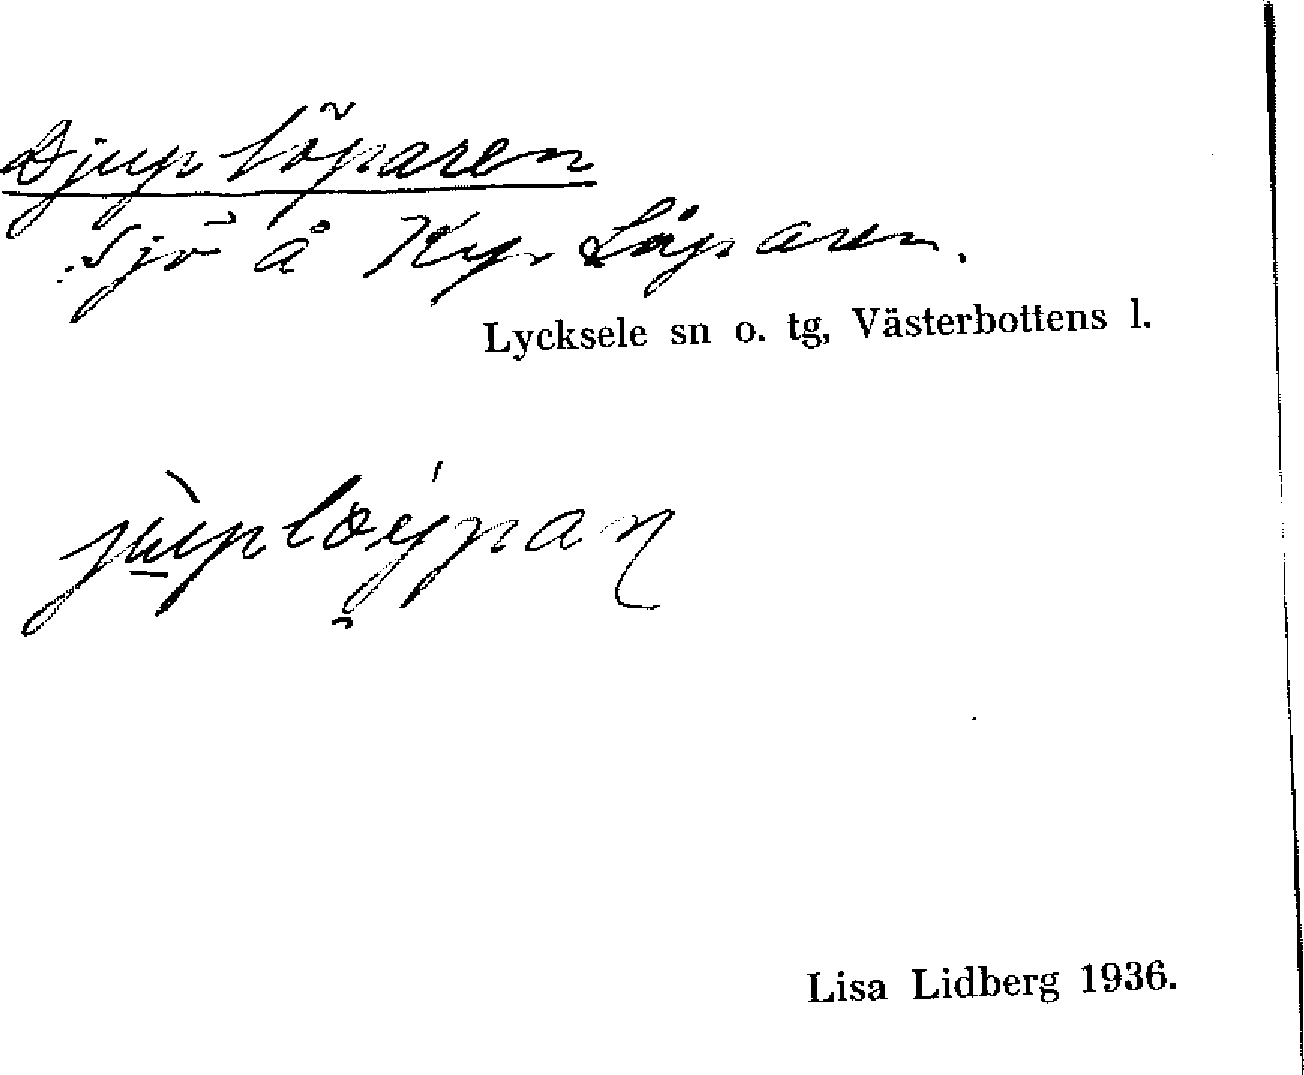 Djuplöparen
Sjö å Kyrlöparen.
Lycksele sn o. tg, Västerbottens l.
Lisa Lidberg 1936.